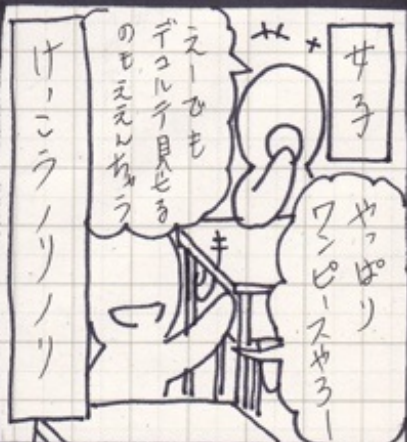 女子
やっぱり
ワンピースやろー
キャ
キ
えーでも
デコルテ見せる
のもええんちゃう
けっこうノリノリ